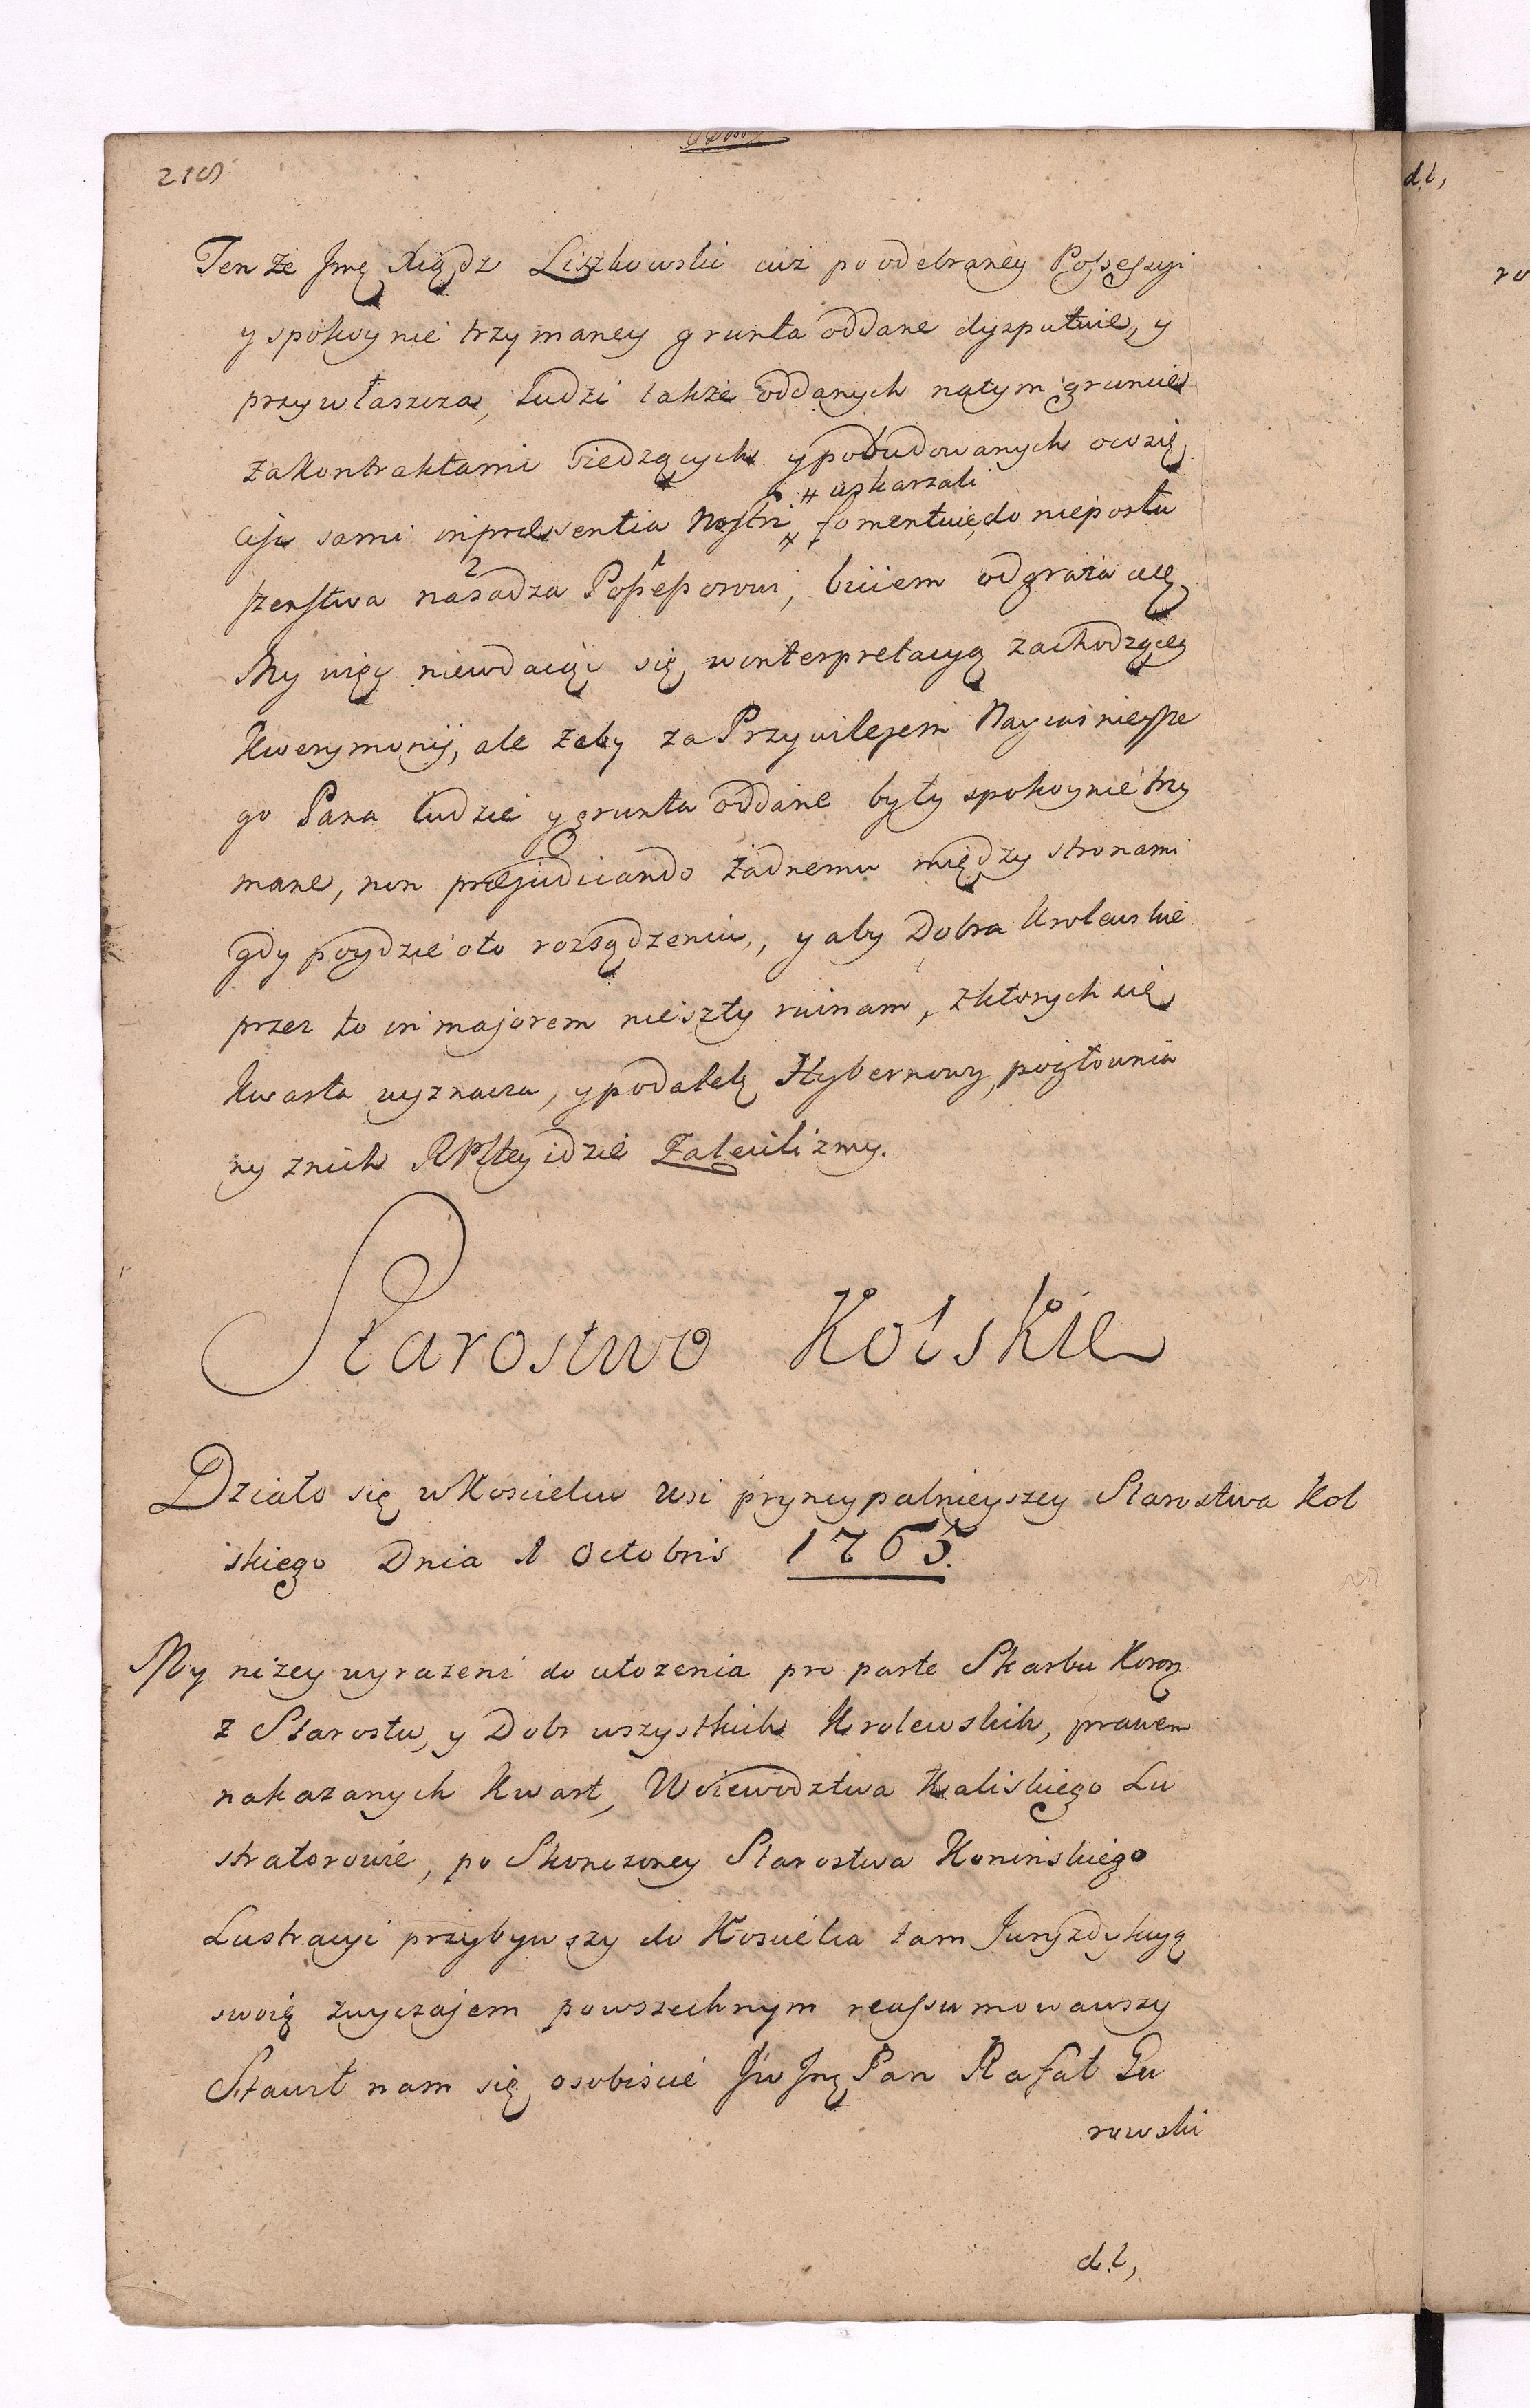 218
Tenże Jmę Xiądz Liszkowski iuż po odebraney Possessyi
y spokoynie trzymaney grunta oddane dysputuie, y
przywłaszcza, Ludzi także oddanych natym gruncie
zakontraktami siedzących ypobudowanych ocosię
# uskarzali
ciże sami inpraesentia Nostri # fomentuie, do nieposłu
2 1
szenstwa nasadza Possessorowi, biciem odgraża
My więc niewdaiąc się winterpretacyą zachodzącey
Kwerymonij, ale żeby za Przywilejem Nayiaśnieysze
go Pana ludzie ygrunta oddane były spokoynie trzy
mane, non praejudicando żadnemu między stronami
gdy poydzie oto rozsądzeniu, y aby Dobra Krolewskie
przez to in majorem nieszły ruinam, zktorych się
Kwarta wyznacza, ypodatek Hybernowy, pogłowna
ny znich RPltey idzie Zaleciliżmy.
Starostwo Kolskie
Działo się wKoscielcu Wsi pryncypalnieyszey Starostwa Kol
skiego Dnia 1 Octobris 1765.
My niżey wyrażeni do ułożenia pro parte Skarbu Koron
z Starostw, y Dobr wszystkich Krolewskich, prawem
nakazanych Kwart, Woiewodztwa Kaliskiego Lu
stratorowie, po Skonczoney Starostwa Koninskiego
Lustracyi przybywszy do Koscielca tam Juryzdykcyą
swoię zwyczajem powszechnym reassumowawszy
Stawił nam się osobiscie Jw Jmę Pan Rafał Gu
rowski
d.l,
d.l,
ro